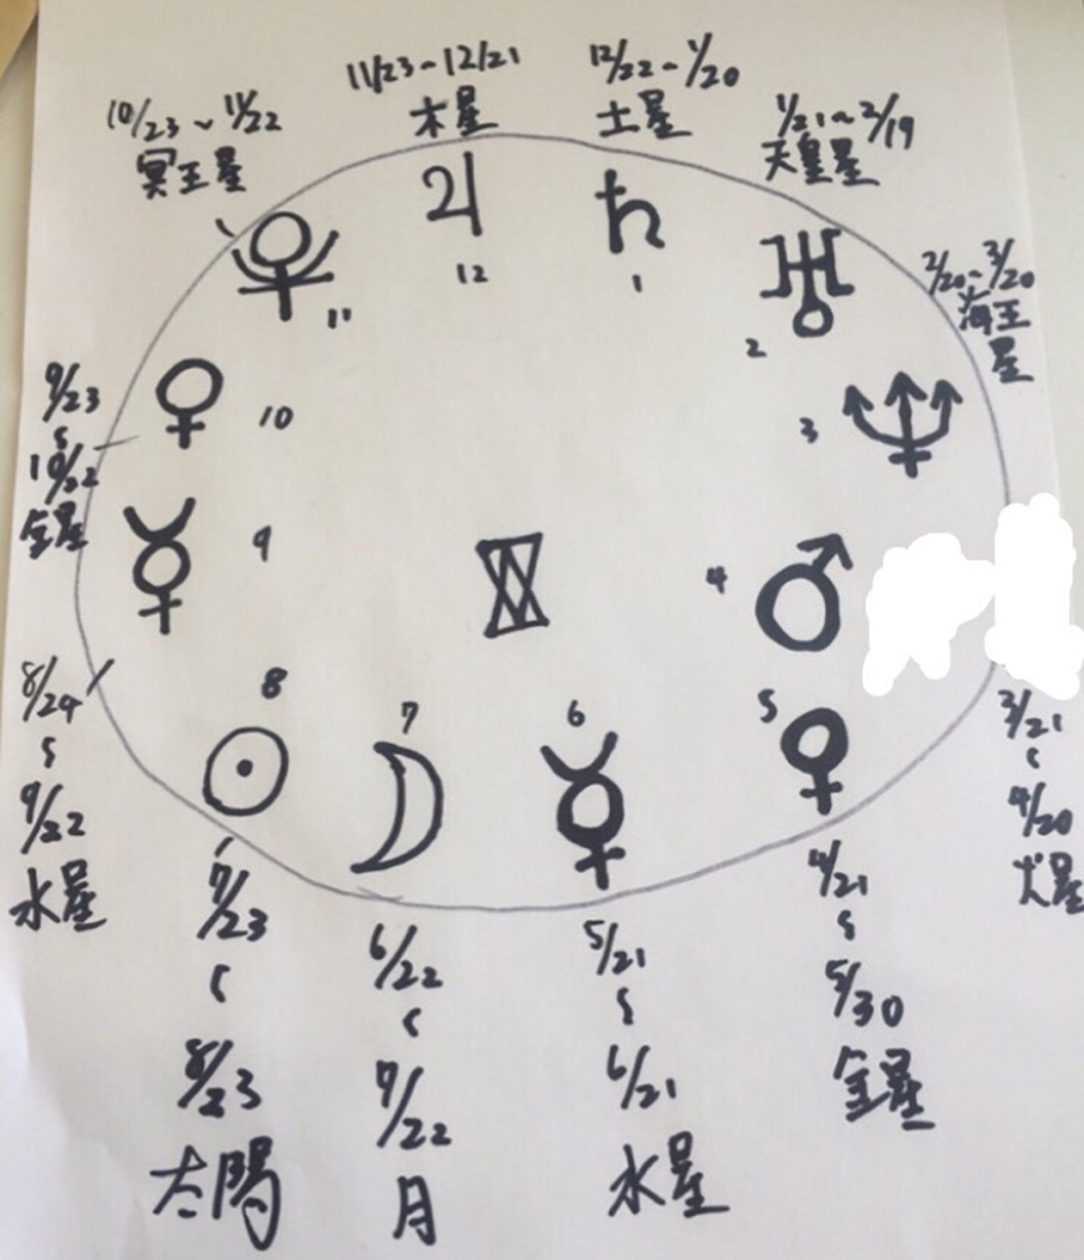 11/23~12/21
木星
12/22~1/20
土星
10/23~11/22
冥王星
1/21~2/19
天皇星
2/20~3/20
海王
星
♃
♄
♅
12
1
11
2
9/23
~
10/22
金星
♀
10
3
♆
☿
9
4
♂
8/24
~
9/22
水星
8
☉
7
☽
6
☿
5
♀
3/21
~
4/20
火星
7/23
~
8/23
太陽
6/22
~
7/22
月
5/21
~
6/21
水星
4/21
~
5/30
金星